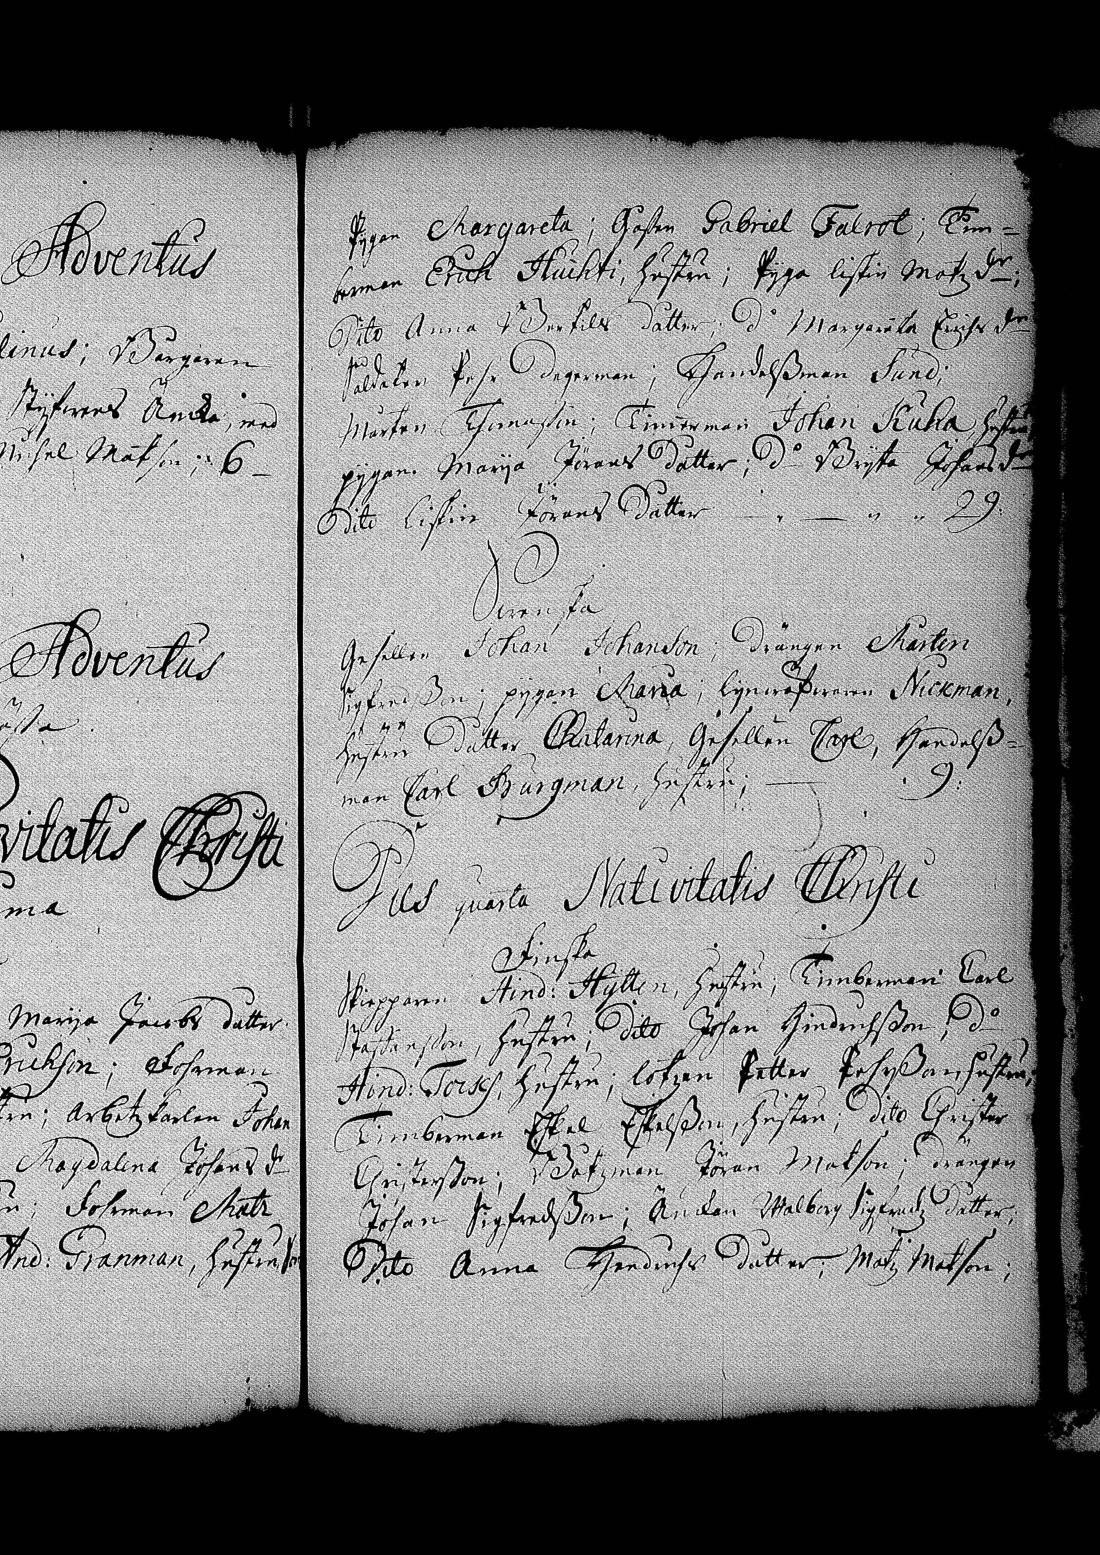 Adventus
linus; Borgaren
Styfwens Ancka, med
Michel Matson; 6 -
Adventus
vitatis Christi
ma
Marija Jacobs datter.
Erichson; Fohrman
tru; Arbetzkarlen Johan
Magdalena Johans dr
Fohrman Matz
And: Granman, Hustru
Pygan Margareta; Gasten Gabriel Falrot; Tim=
berman Erich Huichti, Hustru; Pyga Liskin Matz dr;
Dito Anna Bertils datter; do Margareta Erichs dr
Soldaten Pehr Degerman; Handelsßman Sund;
Morten Thomasson; Timmerman Johan Kuha, Hustru
pygan Marija Jörans Datter; do Brijta Johans dr
Dito Liskin Jörans Datter - - - 29.
Swenska
Gesellen Johan Johanson; drängen Marten
Sigfredßon; pygan Maria; Nickman,
Hustru Datter Chatarina, Gesellen Carl, Handelß=
man Carl Burgman, Hustru; - 9:
Dies quarta Nativitatis Christi
Finska
Skiepparen Hind: Hytten, Hustru; Timberman Carl
Staffansson, Hustru; dito Johan Hindrichßon; do
Hind: Torsk, Hustru; lotzen Petter Pehrßon Hustru;
Timberman Eskel Eskelßon, Hustru, dito Christer
Christerßon; Båtzman Jöran Matson; drängen
Johan Sigfredßon; Änckan Walborg Sigfredz datter;
Dito Anna Hendrichs Datter; Matz Matson;